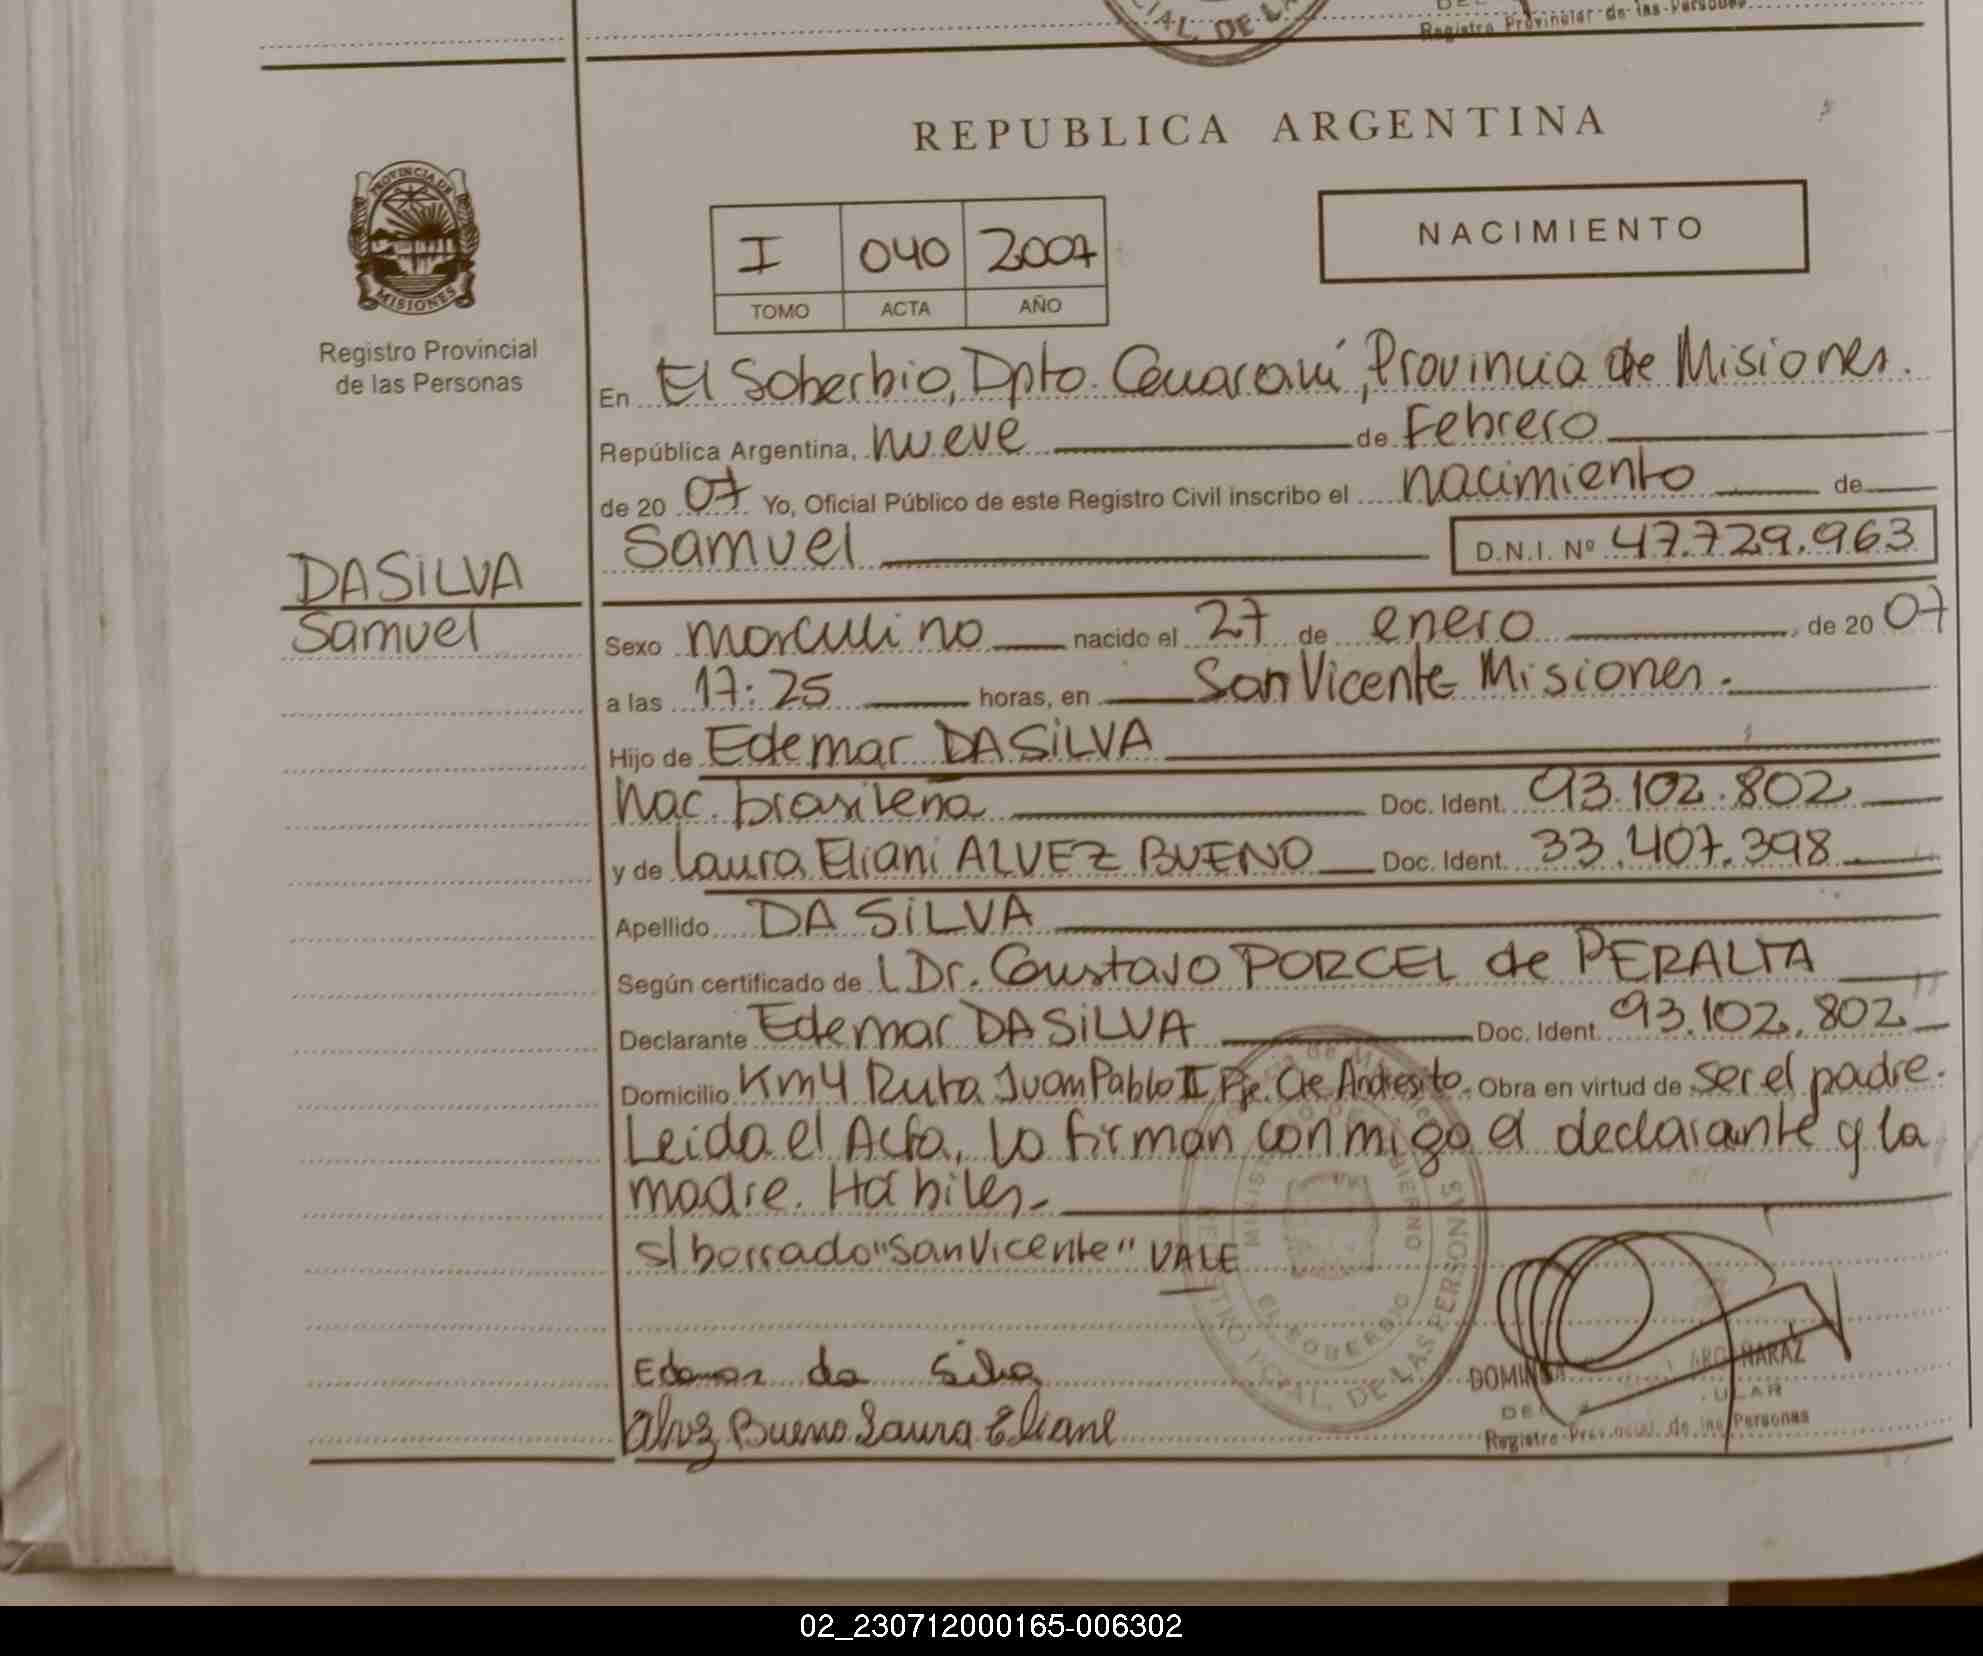 CIAL DE LA
Registro Provincial de las Personas
REPUBLICA ARGENTINA
PROVINCIA DE
MISIONES
Registro Provincial
de las Personas
I 040 2007
TOMO ACTA AÑO
NACIMIENTO
En El Soberbio, Dpto. Guaraní, Provincia de Misiones.
República Argentina, nueve de Febrero
de 20 07 Yo, Oficial Público de este Registro Civil inscribo el nacimiento de
Samuel D.N.I. Nº 47.729.963
DA SILVA
Samuel
Sexo masculino nacido el 27 de enero, de 20 07
a las 17:25 horas, en San Vicente Misiones.
Hijo de Edemar DA SILVA
Nac. brasileña Doc. Ident. 93.102.802
y de Laura Eliani ALVEZ BUENO Doc. Ident. 33.407.398
Apellido DA SILVA
Según certificado de l Dr. Gustavo PORCEL de PERALTA
Declarante Edemar DA SILVA Doc. Ident. 93.102.802
Domicilio Km 4 Ruta Juan Pablo II Pje. Cte Andresito. Obra en virtud de ser el padre.
Leida el Acta, lo firman conmigo el declarante y la
madre. Hábiles.-
s/ borrado "San Vicente" VALE
Edemar da Silva
Alvez Bueno Laura Eliane
EL SOBERBIO
DE LAS PERSONAS
Registro Provincial de las Personas
02_230712000165-006302